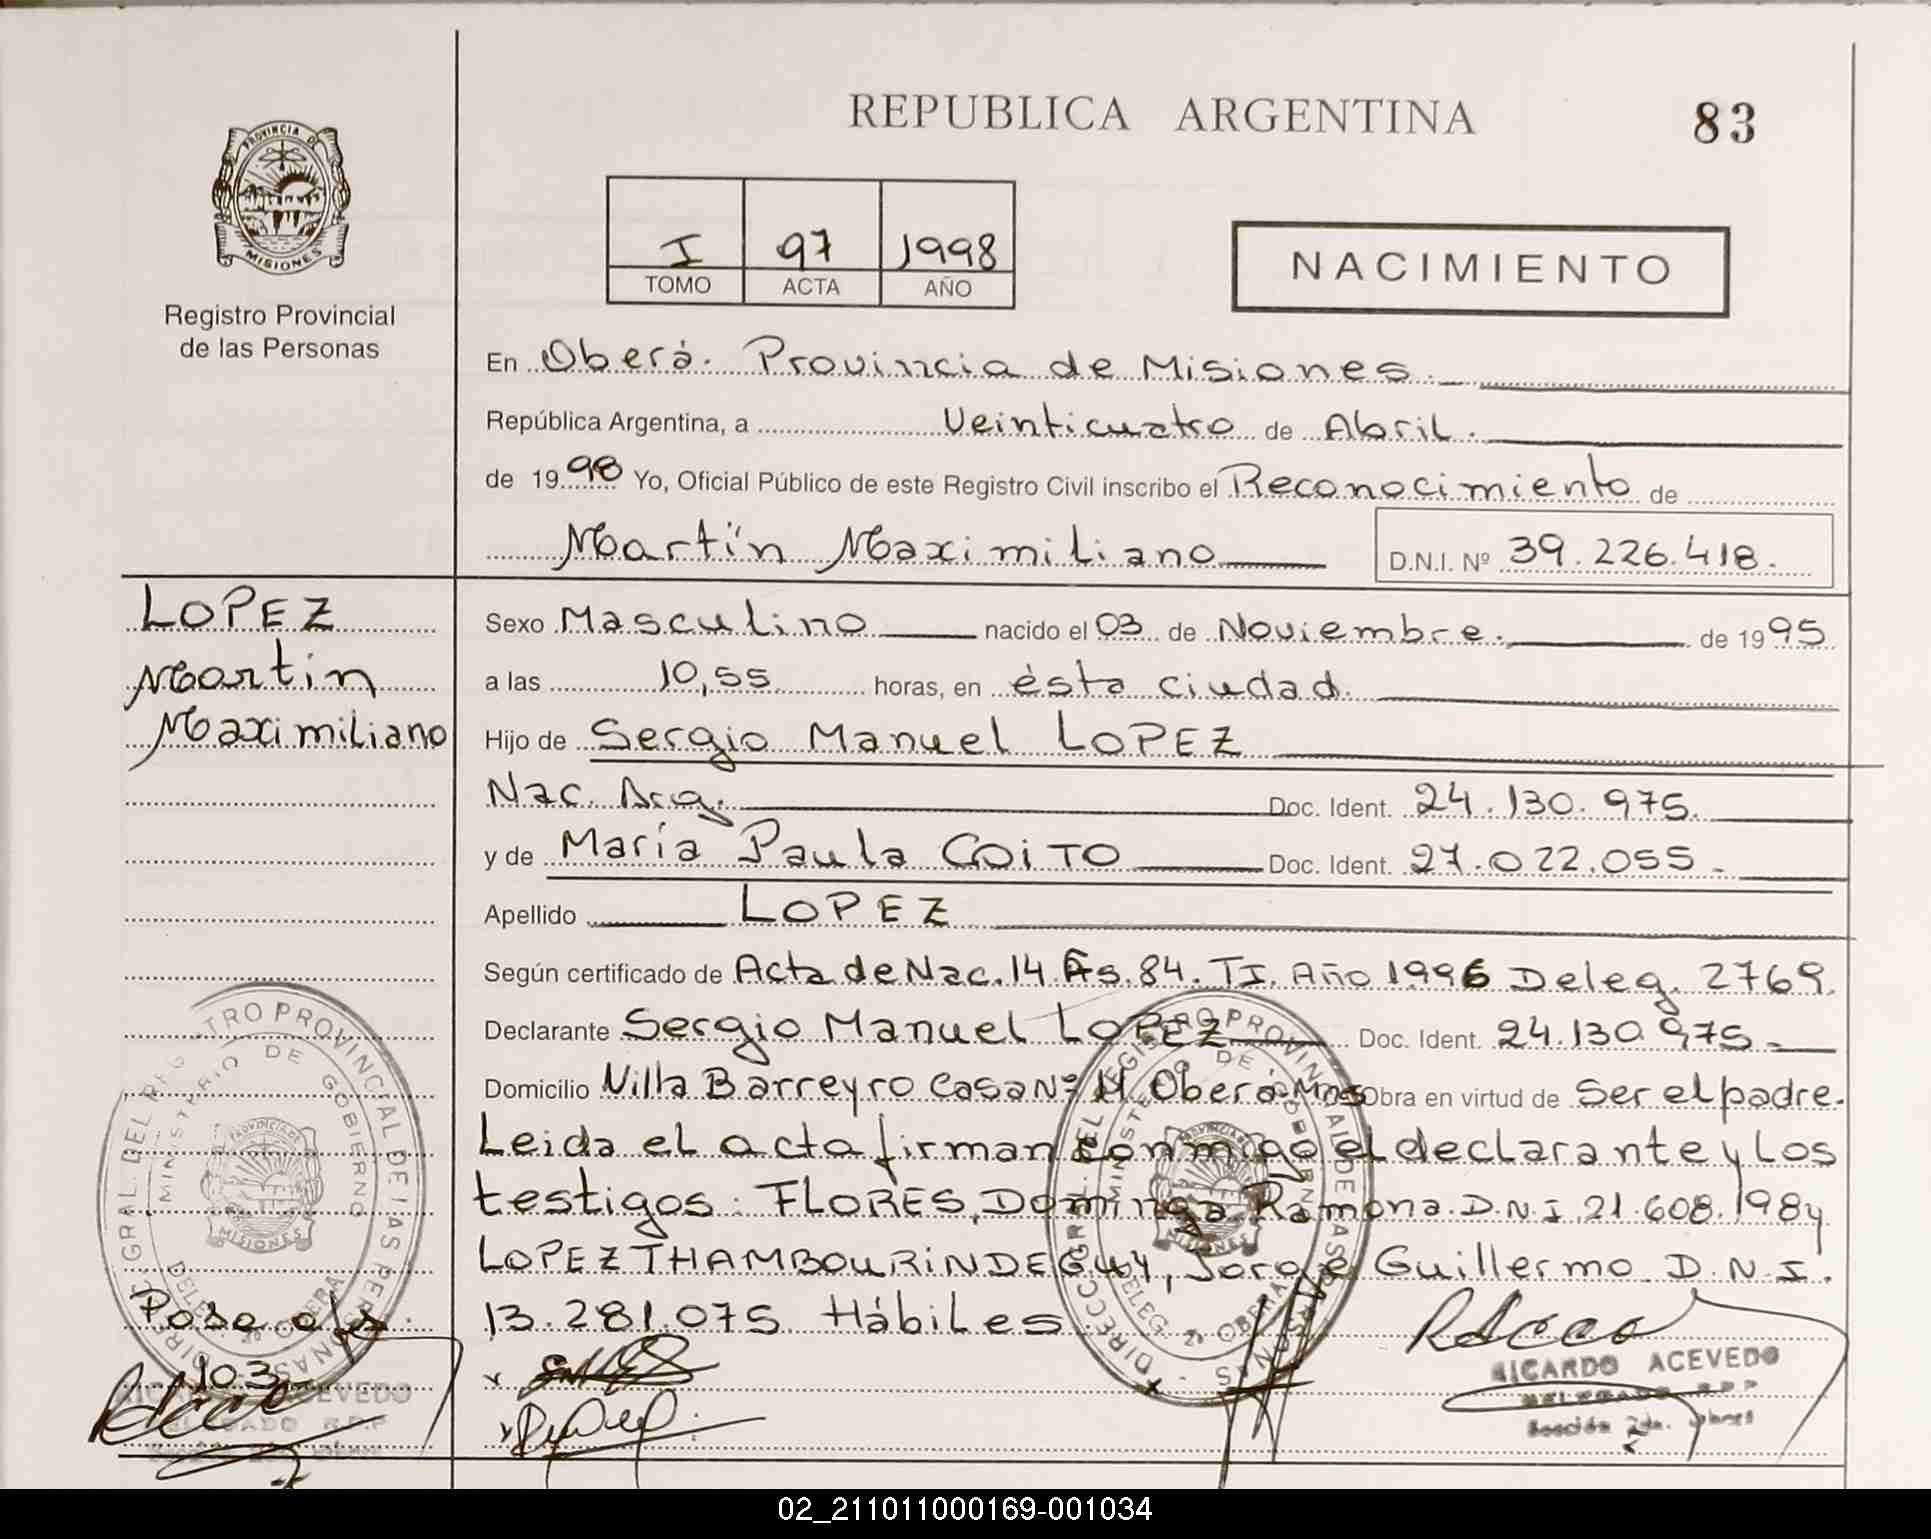 REPUBLICA ARGENTINA
83
PROVINCIA DE
MISIONES
Registro Provincial
de las Personas
I 97 1998
TOMO ACTA AÑO
NACIMIENTO
En Oberá. Provincia de Misiones.
República Argentina, a Veinticuatro de Abril.
de 1998 Yo, Oficial Público de este Registro Civil inscribo el Reconocimiento de
Martín Maximiliano D.N.I. Nº 39.226.418.
LOPEZ
Martin
Maximiliano
Sexo Masculino nacido el 03 de Noviembre. de 1995
a las 10,55 horas, en ésta ciudad.
Hijo de Sergio Manuel LOPEZ
Nac. Arg. Doc. Ident. 24.130.975.
y de María Paula COITO Doc. Ident. 27.022.055
Apellido LOPEZ
Según certificado de Acta de Nac. 14. Fs. 84. TI. Año 1996 Deleg. 2769.
Declarante Sergio Manuel LOPEZ Doc. Ident. 24.130.975
Domicilio Villa Barreyro Casa Nº 11 Oberá-Mnes Obra en virtud de Ser el padre.
Leida el acta firman conmigo el declarante y los
testigos: FLORES, Dominga Ramona. D.N.I. 21.608.198 y
LOPEZ THAMBOURINDEGUY, Jorge Guillermo. D.N.I.
13.281.075 Hábiles
Pasa al
103
DIRECC. GRAL. DEL REGISTRO PROVINCIAL DE LAS PERSONAS
MINISTERIO DE GOBIERNO
DELEG. 2ª OBERA
PROVINCIA DE
MISIONES
DIRECC. GRAL. DEL REGISTRO PROVINCIAL DE LAS PERSONAS
MINISTERIO DE GOBIERNO
DELEG. 2ª OBERA
MISIONES
RICARDO ACEVEDO
DELEGADO R.P.P
RICARDO ACEVEDO
DELEGADO R.P.P
Sección 2da. Oberá
02_211011000169-001034